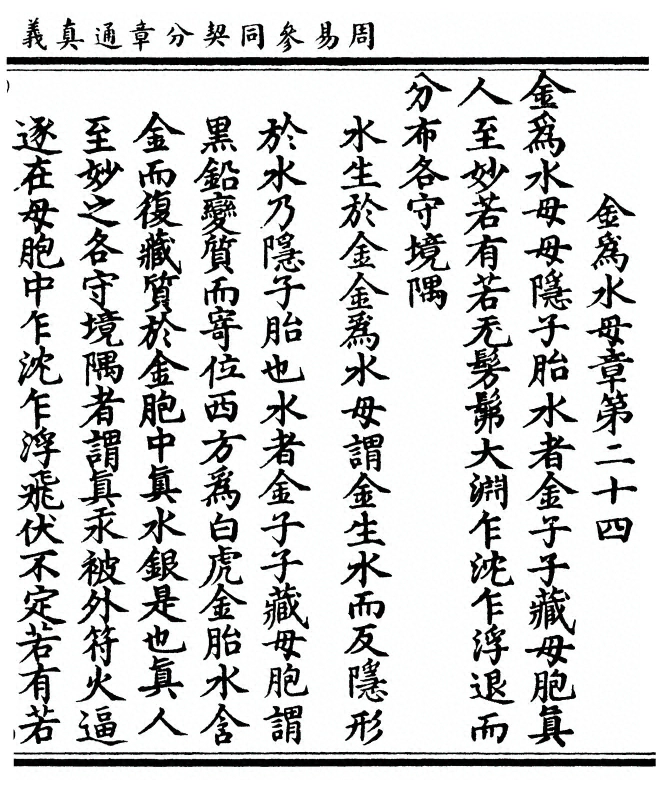 周易參同契分章通真義
金為水母章第二十四
金為水母母隱子胎水者金子子藏母胞真
人至妙若有若无髣髴大淵乍沈乍浮退而
分布各守境隅
水生於金金為水母謂金生水而反隱形
於水乃隱子胎也水者金子子藏母胞謂
黑鉛變質而寄位西方為白虎金胎水含
金而復藏質於金胞中真水銀是也真人
至妙之各守境隅者謂真汞被外符火逼
逐在母胞中乍沈乍浮飛伏不定若有若